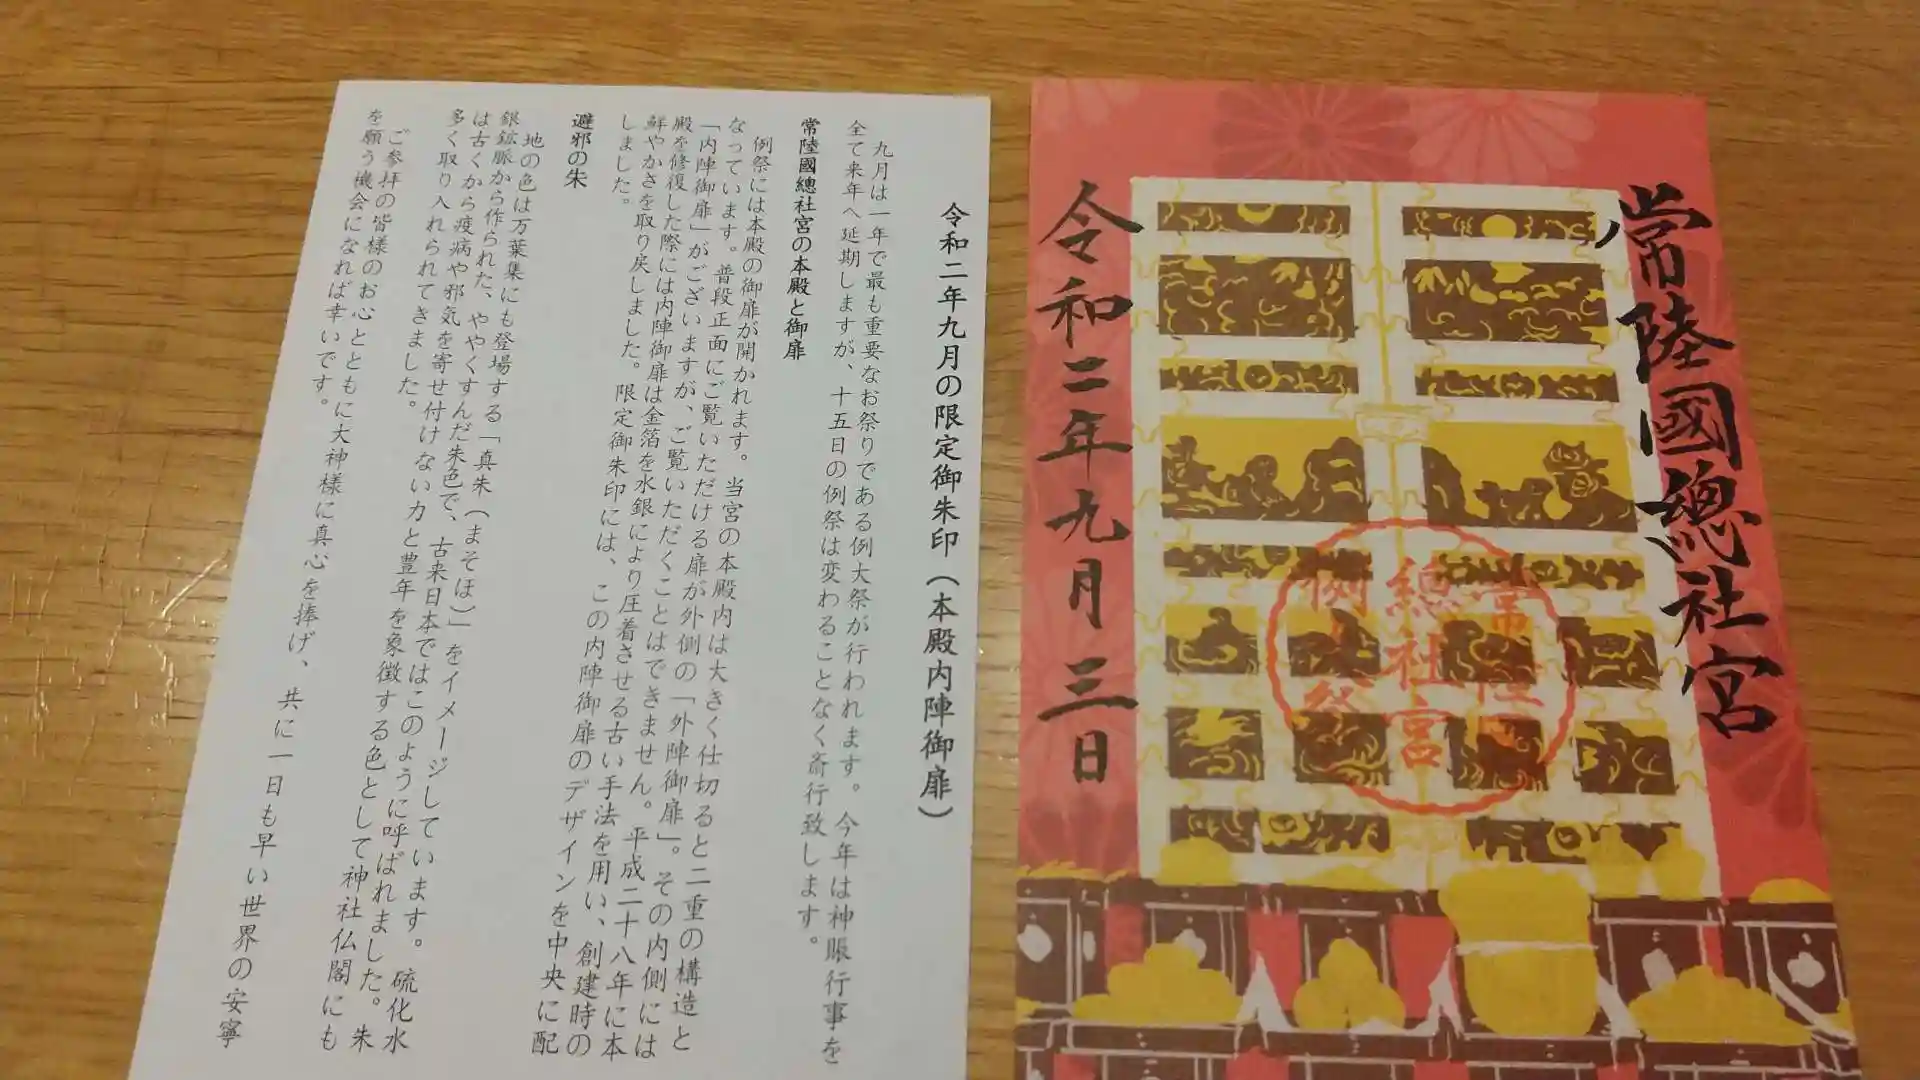 令和二年九月の限定御朱印(本殿内陣御扉)
九月は一年で最も重要なお祭りである例大祭が行われます。今年は神賑行事を
全て来年へ延期しますが、十五日の例祭は変わることなく斎行致します。
常陸國總社宮の本殿と御扉
例祭には本殿の御扉が開かれます。当宮の本殿内は大きく仕切ると二重の構造と
なっています。普段正面にご覧いただける扉が外側の「外陣御扉」。その内側には
「内陣御扉」がございますが、ご覧いただくことはできません。平成二十八年に本
殿を修復した際には内陣御扉は金箔を水銀により圧着させる古い手法を用い、創建時の
鮮やかさを取り戻しました。限定御朱印には、この内陣御扉のデザインを中央に配
しました。
避邪の朱
地の色は万葉集にも登場する「真朱(まそほ)」をイメージしています。硫化水
銀鉱脈から作られた、ややくすんだ朱色で、古来日本ではこのように呼ばれました。朱
は古くから疫病や邪気を寄せ付けない力と豊年を象徴する色として神社仏閣にも
多く取り入れられてきました。
ご参拝の皆様のお心とともに大神様に真心を捧げ、共に一日も早い世界の安寧
を願う機会になれば幸いです。
常陸國總社宮
常陸
總社宮
例祭
令和二年九月三日